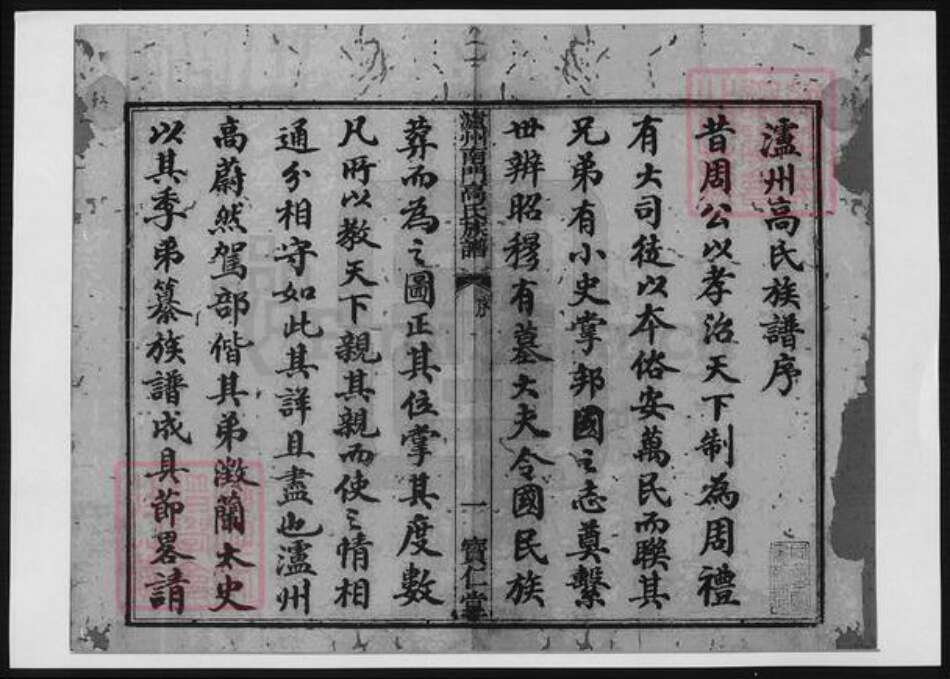 瀘州高氏族譜序
昔周公以孝治天下制為周禮
有大司徒以本俗安萬民而聯其
兄弟有小史掌邦國之志奠繫
世辨昭穆有墓大夫令國民族
瀘州南門高氏族譜 序 一 寶仁堂
葬而為之圖正其位掌其度數
凡所以教天下親其親而使之情相
通分相守如此其詳且盡也瀘州
高蔚然駕部偕其弟澂蘭太史
以其季弟纂族譜成具節畧請